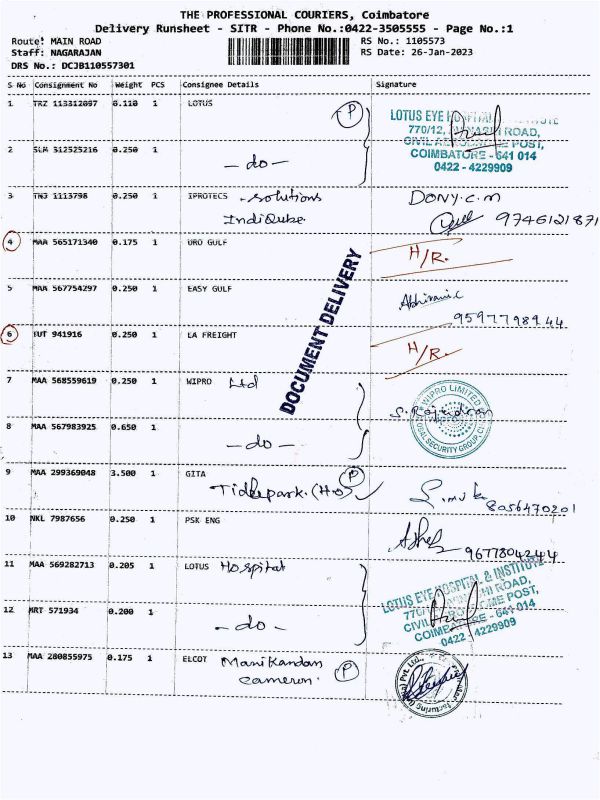 THE PROFESSIONAL COURIERS, Coimbatore
Delivery Runsheet - SITR - Phone No.:0422-3505555 - Page No.:1
Route: MAIN ROAD RS No.: 1105573
Staff: NAGARAJAN RS Date: 26-Jan-2023
DRS No.: DCJB110557301
S No Consignment No Weight PCS Consignee Details Signature
1 TRZ 113312097 0.110 1 LOTUS P
LOTUS EYE HOSPITAL & INSTITUTE
770/12, AVINASHI ROAD,
CIVIL AERODROME POST,
COIMBATORE - 641 014
0422 - 4229909
2 SLM 512525216 0.250 1
- do -
3 TNJ 1113798 0.250 1 IPROTECS solutions DONY.C.M
IndiQube 9746121871
4 MAA 565171340 0.175 1 URO GULF H/R.
DOCUMENT DELIVERY
5 MAA 567754297 0.250 1 EASY GULF
9597798944
6 TUT 941916 0.250 1 LA FREIGHT H/R.
7 MAA 568559619 0.250 1 WIPRO Ltd
WIPRO LIMITED
8 MAA 567983925 0.650 1
- do -
9 MAA 299369048 3.500 1 GITA P
Tidelpark.(H.O) 8056470201
10 NKL 7987656 0.250 1 PSK ENG
9677804244
11 MAA 569282713 0.205 1 LOTUS Hospital
LOTUS EYE HOSPITAL & INSTITUTE
770/12, AVINASHI ROAD,
CIVIL AERODROME POST,
COIMBATORE - 641 014
0422 - 4229909
12 MRT 571934 0.200 1
- do -
13 MAA 280855975 0.175 1 ELCOT Manikandan P
cameron.